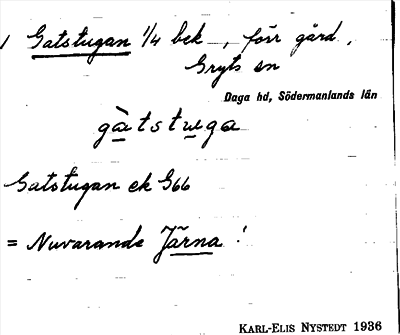 1 Gatstugan 1/4 bek –, förr gård,
Gryts sn
Daga hd, Södermanlands län
gàtstuga
Gatstugan ek G66
= Nuvarande Järna!
KARL-ELIS NYSTEDT 1936